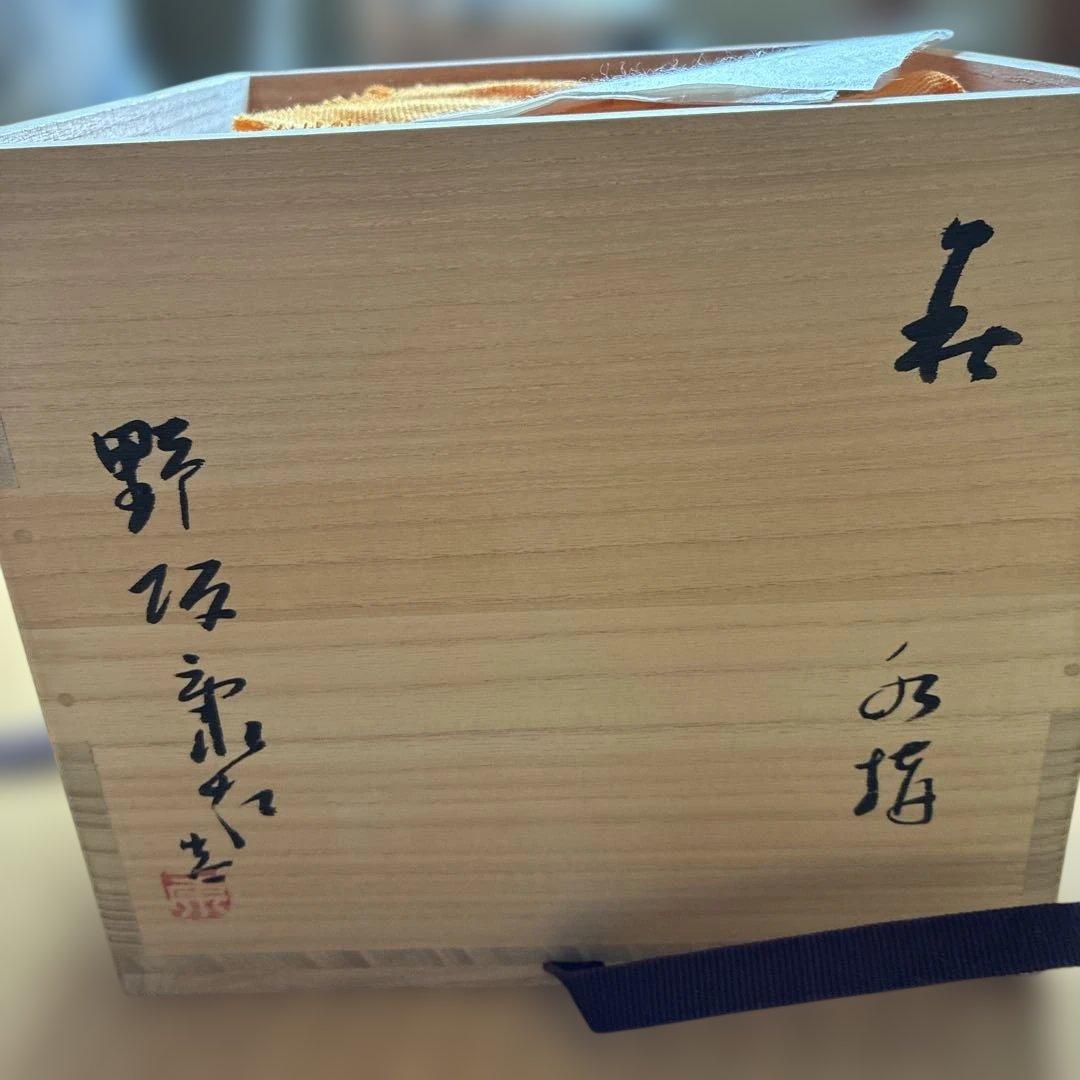 萩 水指
野坂康起 造